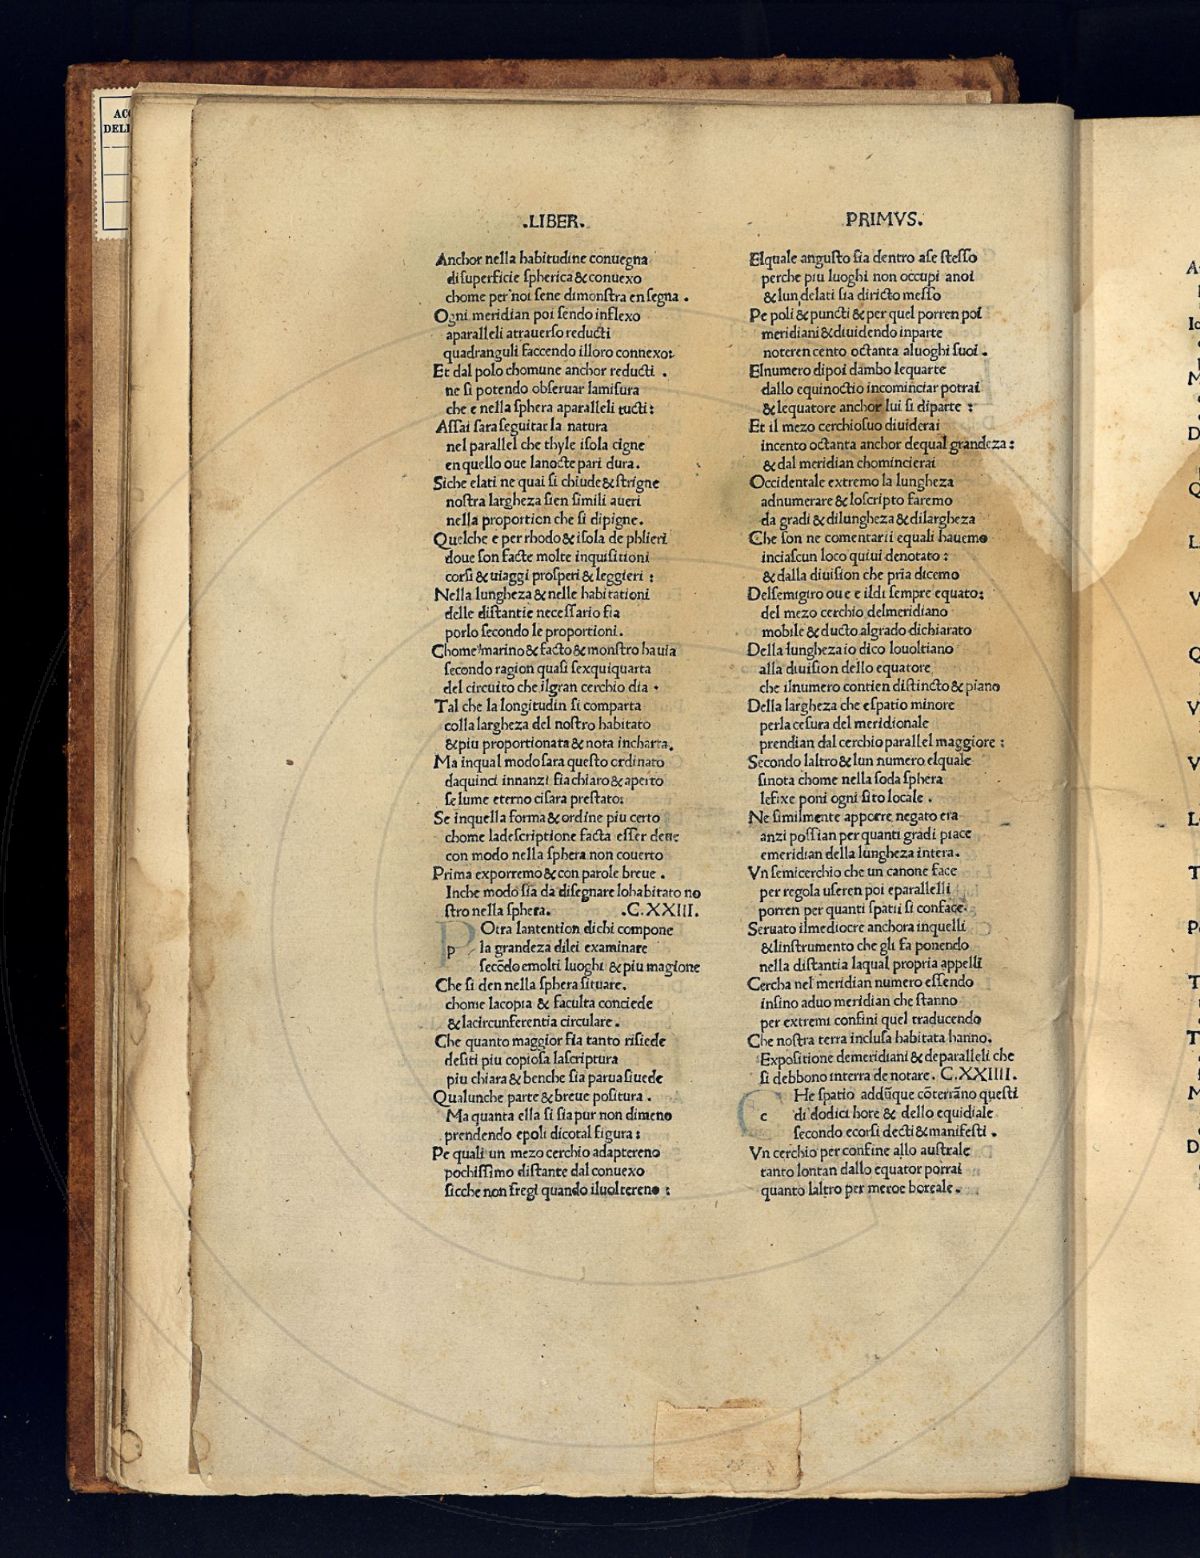 ACC
DELL
.LIBER.
PRIMVS.
Anchor nella habitudine conuegna
di superficie spherica & conuexo
chome per noi sene dimonstra en segna .
Ogni meridian poi sendo inflexo
aparalleli atrauerso reducti
quadranguli faccendo illoro connexo:
Et dal polo chomune anchor reducti .
ne si potendo obseruar lamisura
che e nella sphera aparalleli tucti:
Assai sara seguitar la natura
nel parallel che thyle isola cigne
en quello oue lanocte pari dura.
Siche elati ne quai si chiude & strigne
nostra largheza sien simili aueri
nella proportion che si dipigne.
Quelche e per rhodo & isola de phlieri
doue son facte molte inquisitioni
corsi & uiaggi prosperi & leggieri :
Nella lungheza & nelle habitationi
delle distantie necessario fia
porlo secondo le proportioni.
Chome marino & facto & monstro hauia
secondo ragion quasi sexquiquarta
del circuito che ilgran cerchio dia .
Tal che la longitudin si comparta
colla largheza del nostro habitato
& piu proportionata & nota incharta.
Ma inqual modo sara questo ordinato
daquinci innanzi fia chiaro & aperto
se lume eterno cisara prestato:
Se inquella forma & ordine piu certo
chome ladescriptione facta esser dette
con modo nella sphera non couerto
Prima exporremo & con parole breue .
Inche modo sia da disegnare lohabitato no
stro nella sphera. .C.XXIII.
p Otra lantention dichi compone
la grandeza dilei examinare
secōdo emolti luoghi & piu magione
Che si den nella sphera situare.
chome lacopia & faculta conciede
& lacircunferentia circulare .
Che quanto maggior fia tanto risiede
desiti piu copiosa lascriptura
piu chiara & benche sia parua siuede
Qualunche parte & breue positura .
Ma quanta ella si sia pur non dimeno
prendendo epoli dicotal figura :
Pe quali un mezo cerchio adaptereno
pochissimo distante dal conuexo
sicche non fregi quando iluoltereno :
Elquale angusto sia dentro ase stesso
perche piu luoghi non occupi anoi
& lun delati sia diricto messo
Pe poli & puncti & per quel porren poi
meridiani & diuidendo inparte
noteren cento octanta aluoghi suoi .
Elnumero dipoi dambo lequarte
dallo equinoctio incominciar potrai
& lequatore anchor lui si diparte :
Et il mezo cerchio suo diuiderai
incento octanta anchor dequal grandeza :
& dal meridian chomincierai
Occidentale extremo la lungheza
adnumerare & loscripto faremo
da gradi & dilungheza & dilargheza
Che son ne comentarii equali hauemo
inciascun loco quiui denotato :
& dalla diuision che pria dicemo
Delsemigiro oue e ildi sempre equato:
del mezo cerchio delmeridiano
mobile & ducto algrado dichiarato
Della lungheza io dico louoltiano
alla diuision dello equatore
che ilnumero contien distincto & piano
Della largheza che espatio minore
perla cesura del meridionale
prendian dal cerchio parallel maggiore :
Secondo laltro & lun numero elquale
sinota chome nella soda sphera
lefixe poni ogni sito locale .
Ne similmente apporre negato era
anzi possian per quanti gradi piace
emeridian della lungheza intera.
Vn semicerchio che un canone face
per regola useren poi eparallelli
porren per quanti spatii si conface.
Seruato ilmediocre anchora inquelli
& linstrumento che gli fa ponendo
nella distantia laqual propria appelli
Cercha nel meridian numero essendo
insino aduo meridian che stanno
per extremi confini quel traducendo
Che nostra terra inclusa habitata hanno.
Expositione demeridiani & deparalleli che
si debbono interra de notare. C.XXIIII.
c He spatio addūque cōterrāno questi
di dodici hore & dello equidiale
secondo ecorsi decti & manifesti .
Vn cerchio per confine allo australe
tanto lontan dallo equator porrai
quanto laltro per meroe boreale.